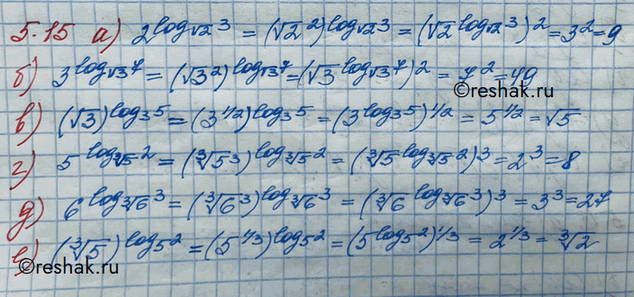 5.15 а) 2^{log_{√2} 3} = (√2^2)^{log_{√2} 3} = (√2^{log_{√2} 3})^2 = 3^2 = 9
б) 3^{log_{√3} 7} = (√3^2)^{log_{√3} 7} = (√3^{log_{√3} 7})^2 = 7^2 = 49
©reshak.ru
в) (√3)^{log_3 5} = (3^{1/2})^{log_3 5} = (3^{log_3 5})^{1/2} = 5^{1/2} = √5
г) 5^{log_{∛5} 2} = (∛5^3)^{log_{∛5} 2} = (∛5^{log_{∛5} 2})^3 = 2^3 = 8
д) 6^{log_{∛6} 3} = (∛6^3)^{log_{∛6} 3} = (∛6^{log_{∛6} 3})^3 = 3^3 = 27
е) (∛5)^{log_5 2} = (5^{1/3})^{log_5 2} = (5^{log_5 2})^{1/3} = 2^{1/3} = ∛2
©reshak.ru